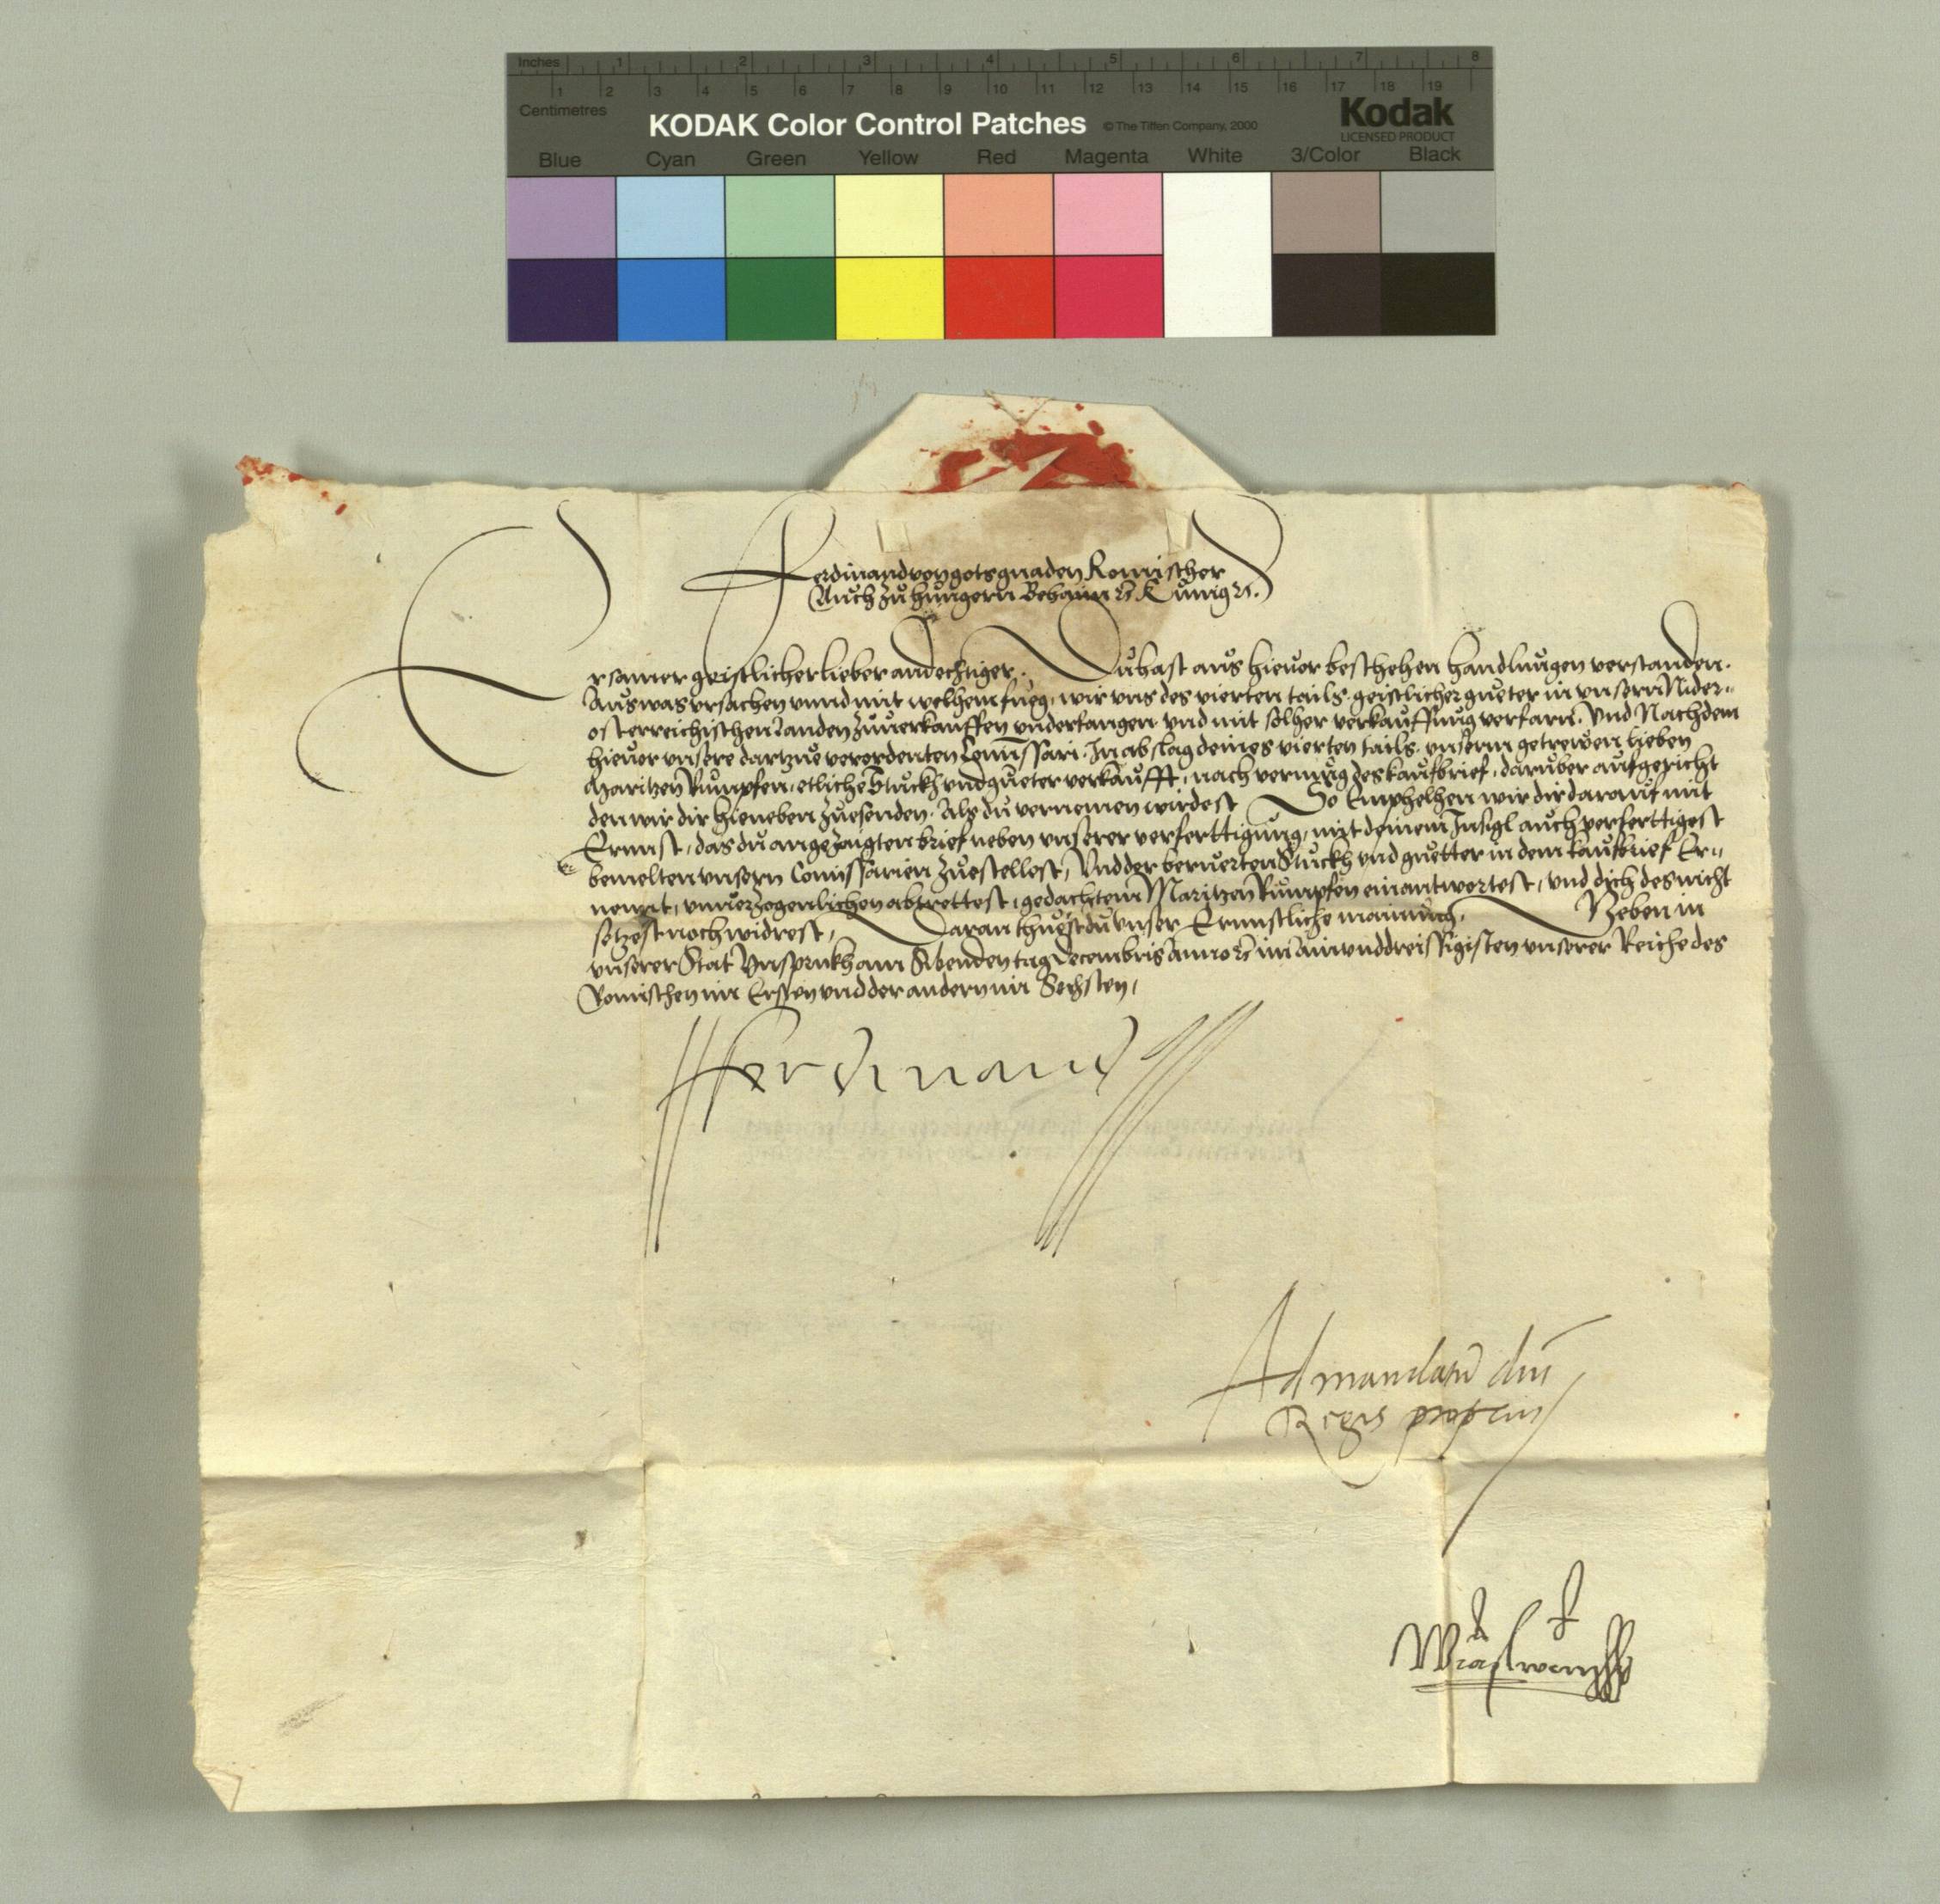 Inches 1 2 3 4 5 6 7 8
1 2 3 4 5 6 7 8 9 10 11 12 13 14 15 16 17 18 19
Centimetres
KODAK Color Control Patches © The Tiffen Company, 2000 Kodak
LICENSED PRODUCT
Blue Cyan Green Yellow Red Magenta White 3/Color Black
Ferdinand von gots gnaden Romischer
Auch zu hungern Behaim &c Kunig &c.
Ersamer geistlicher lieber andechtiger. Du hast aus hieuor beschehen handlungen verstanden.
Aus was vrsachen vnnd mit welhem fueg, wir vns des vierten tails geistlicher gueter in vnsern Nider-
osterreichischen Landen zuuerkauffen vnderfangen vnd mit solher verkauffung verfarn. Vnd Nachdem
hieuor vnsere dartzue verordenten Comissari. In abslag deines vierten tails. vnserm getrewen lieben
Maritzen Rumpfen, etliche Stuckh vnd gueter verkaufft, nach vermug des kaufbrief, daruber aufgericht
den wir dir hieneben zuesenden. Als du vernemen wirdest So Emphelhen wir dir darauf mit
Ernnst, das du angezaigten brief neben vnserer verferttigung, mit deinem Insigl auch verferttigest
bemelten vnsern Comissarien zuestellest, Vnd der beruerten Stuckh vnd guetter in dem kaufbrief Er-
nennt, vnuerzogenlichen abtrettest, gedachtem Maritzen Rumpfen einantwortest, vnd dich des nicht
setzest noch widrest, Daran thuest du vnser Ernnstliche mainung. Geben in
vnserer Stat Ynsprukh am Sibenden tag Decembris Anno &c im ainunddreissigisten vnserer Reiche des
Romischen im Ersten vnd der andern im Sechsten,
Ferdinand
Ad mandatu dni
Regis propriu